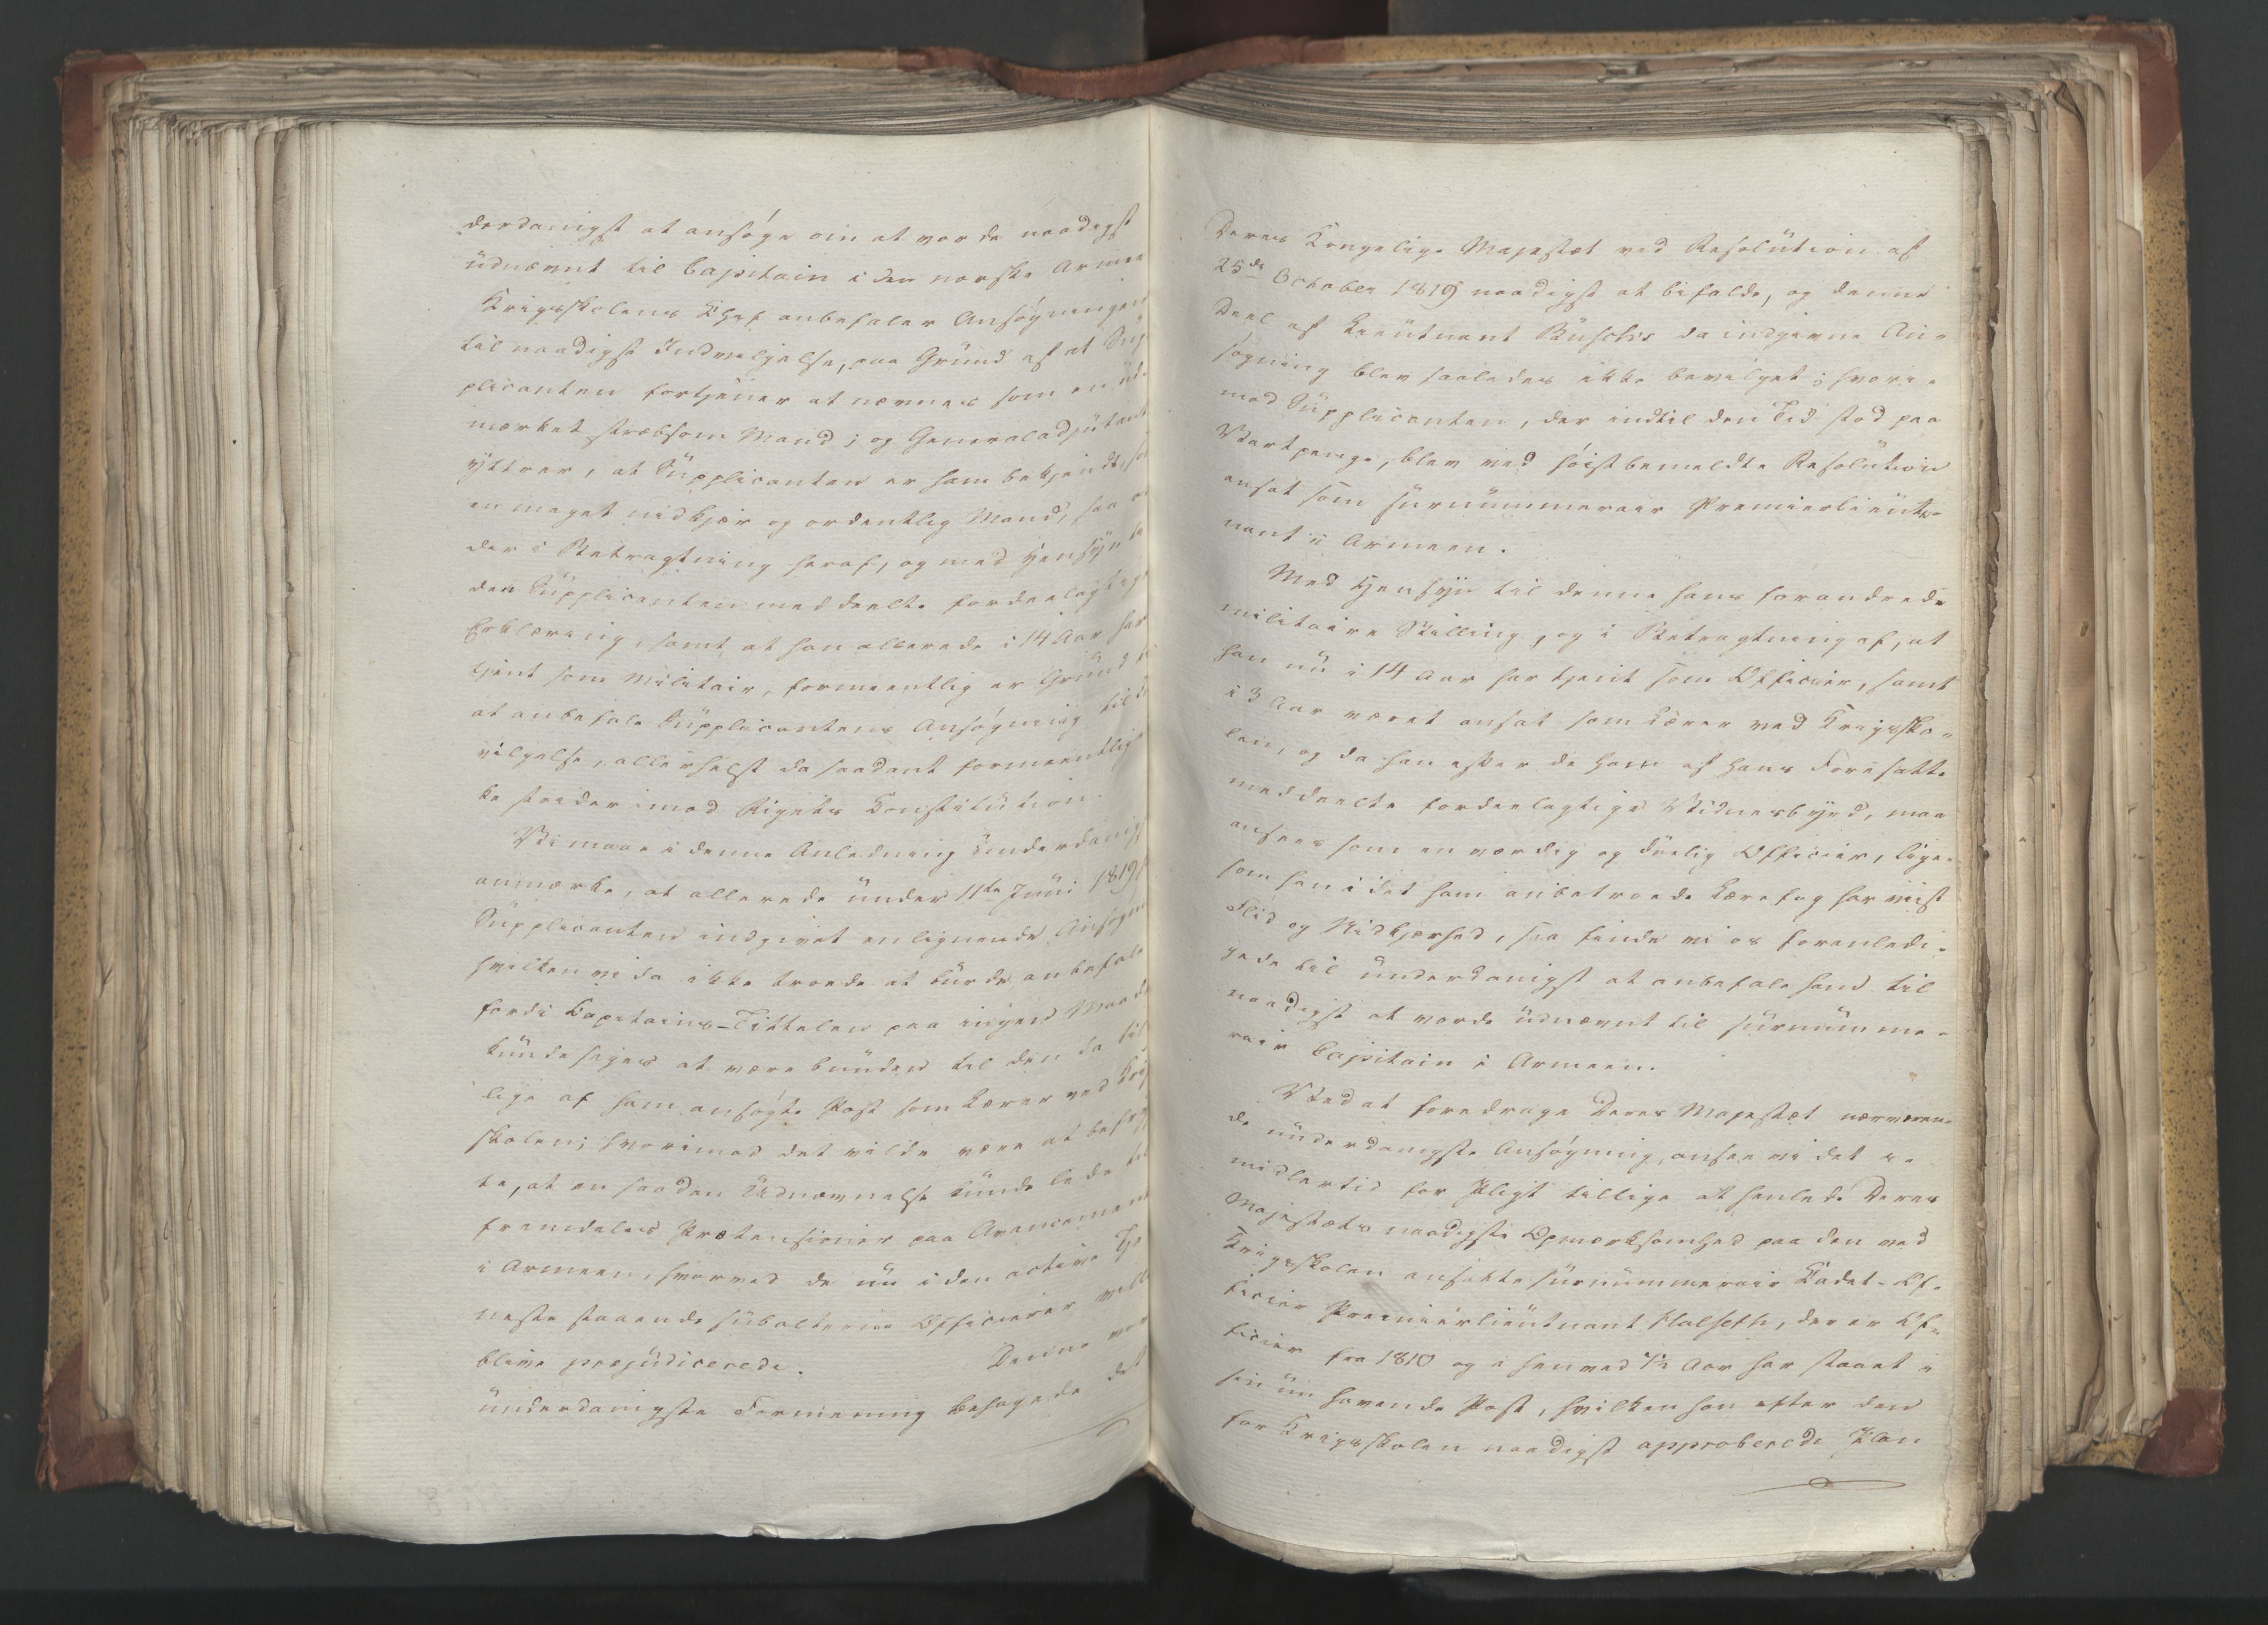 derdanigst at ansøge om at vorde naadigst
udnævnt til Capitain i den norske Armee
Krigsskolens Chef anbefaler Ansøgningen
til naadigst Indvilgelse, paa Grund af at Sup
plicanten fortjener at nævnes som en ud
mærket stræbsom Mand; og Generaladjutant
yttrer, at Supplicanten er ham bekjendt, som
en meget nidkjær og ordentlig Mand, saa
der i Betragtning heraf, og med Hensyn
den Supplicanten meddeelte fordeelagtige
Erklæring, samt at han allerede i 14 Aar har
tjent som Militair, formeentlig er Grund til
at anbefale Supplicantens Ansøgning til
vilgelse, allerhelst da saadant formeentlig
ke strider imod Rigets Constitution.
Vi maae i denne Anledning underdanigst
anmærke, at allerede under 11te Juni 1819
Supplicanten indgivet en lignende Ansøgn
hvilken vi da ikke troede at burde anbefale
fordi Capitains-Tittelen paa ingen Maade
kunde siges at være bunden til den da til
lige af ham ansøgte Post som Lærer ved Krigs
skolen; hvorimod det vilde være at befryg
te, at en saadan Udnævnelse kunde lede til
fremdeles Prætensioner paa Avancement
i Armeen, hvorved de nu i den active Tje
neste staaende subalterne Officierer ville
blive præjudicerede. Denne vor
underdanigste Formening behagede det
Deres Kongelige Majestæt ved Resolution af
25de October 1819 naadigst at bifalde, og denne
Deel af Lieutnant Buschs da indgivne An-
søgning blev saaledes ikke bevilget; hvori-
mod Supplicanten, der indtil den Tid stod paa
Vartpenge, blev ved høistbemeldte Resolution
ansat som surnummerair Premierlieut-
nant i Armeen.
Med Hensyn til denne hans forandrede
militaire Stilling, og i Betragtning af, at
han nu i 14 Aar har tjent som Officier, samt
i 3 Aar været ansat som Lærer ved Krigssko-
len, og da han efter de ham af hans Foresatte
meddeelte fordeelagtige Vidnesbyrd, maa
ansees som en værdig og duelig Officier, lige-
som han i det ham anbetroede Lærefag har viist
Flid og Nidkjærhed, saa finde vi os foranledi-
gede til underdanigst at anbefale ham til
naadigst at vorde udnævnt til surnumme-
rair Capitain i Armeen.
Ved at foredrage Deres Majestæt nærværen-
de underdanigste Ansøgning, ansee vi det i-
midlertid for Pligt tillige at henlede Deres
Majestæts naadigste Opmærksomhed paa den ved
Krigsskolen ansatte surnummerair Cadet-Of-
ficier Premierlieutnant Halseth, der er Of-
ficier fra 1810 og i henved 4½ Aar har staaet i
sin nu havende Post, hvilken han efter den
for Krigsskolen naadigst approberede Plan